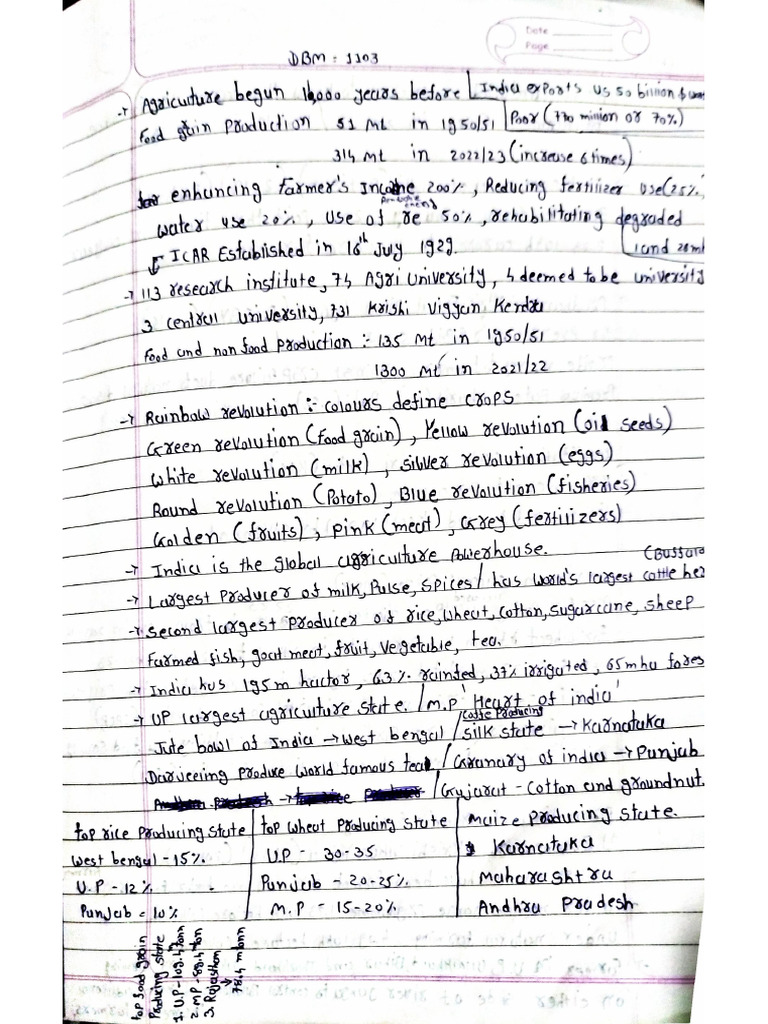 Date
Page
DBM : 1103
→ Agriculture begun 10,000 years before | India exports us 50 billion $
Food grain production 51 Mt in 1950/51 | Poor (770 million or 70%)
314 Mt in 2022/23 (increase 6 times)
for enhancing Farmer's Income 200%, Reducing fertilizer use (25%,
water use 20%, Use of re 50%, rehabilitating degraded
land 26m
ICAR Established in 16th July 1929.
→ 113 research institute, 74 Agri University, 4 deemed to be university
3 central university, 731 Krishi Vigyan Kendra
Food and non food production :- 135 Mt in 1950/51
1300 Mt in 2021/22
→ Rainbow revolution :- colours define crops
Green revolution (Food grain), Yellow revolution (oil seeds)
White revolution (milk), silver revolution (eggs)
Round revolution (Potato), Blue revolution (fisheries)
Golden (fruits), pink (meat), Grey (fertilizers)
→ India is the global agriculture powerhouse.
(Buffalo
→ Largest Producer of milk, Pulse, spices / has world's largest cattle her
→ Second largest producer of rice, wheat, cotton, sugarcane, sheep
farmed fish, goat meat, fruit, vegetable, tea.
→ India has 195m hactor, 63% rainfed, 37% irrigated, 65mha fores
→ UP largest agriculture state. / M.P 'Heart of india'
Coffe Producing
Jute bowl of India → west bengal / silk state → Karnataka
Darjeeling produce world famous tea / Granary of india → Punjab
/ Gujarat - Cotton and groundnut
top rice Producing state | top wheat Producing state | Maize Producing state.
West bengal - 15% | U.P - 30-35 | Karnataka
U.P - 12% | Punjab - 20-25% | Maharashtra
Punjab = 10% | M.P - 15-20% | Andhra Pradesh
top food grain
Producing state
1. U.P - 109.4 tonn
2. MP - 59.4 ton
3. Rajasthan